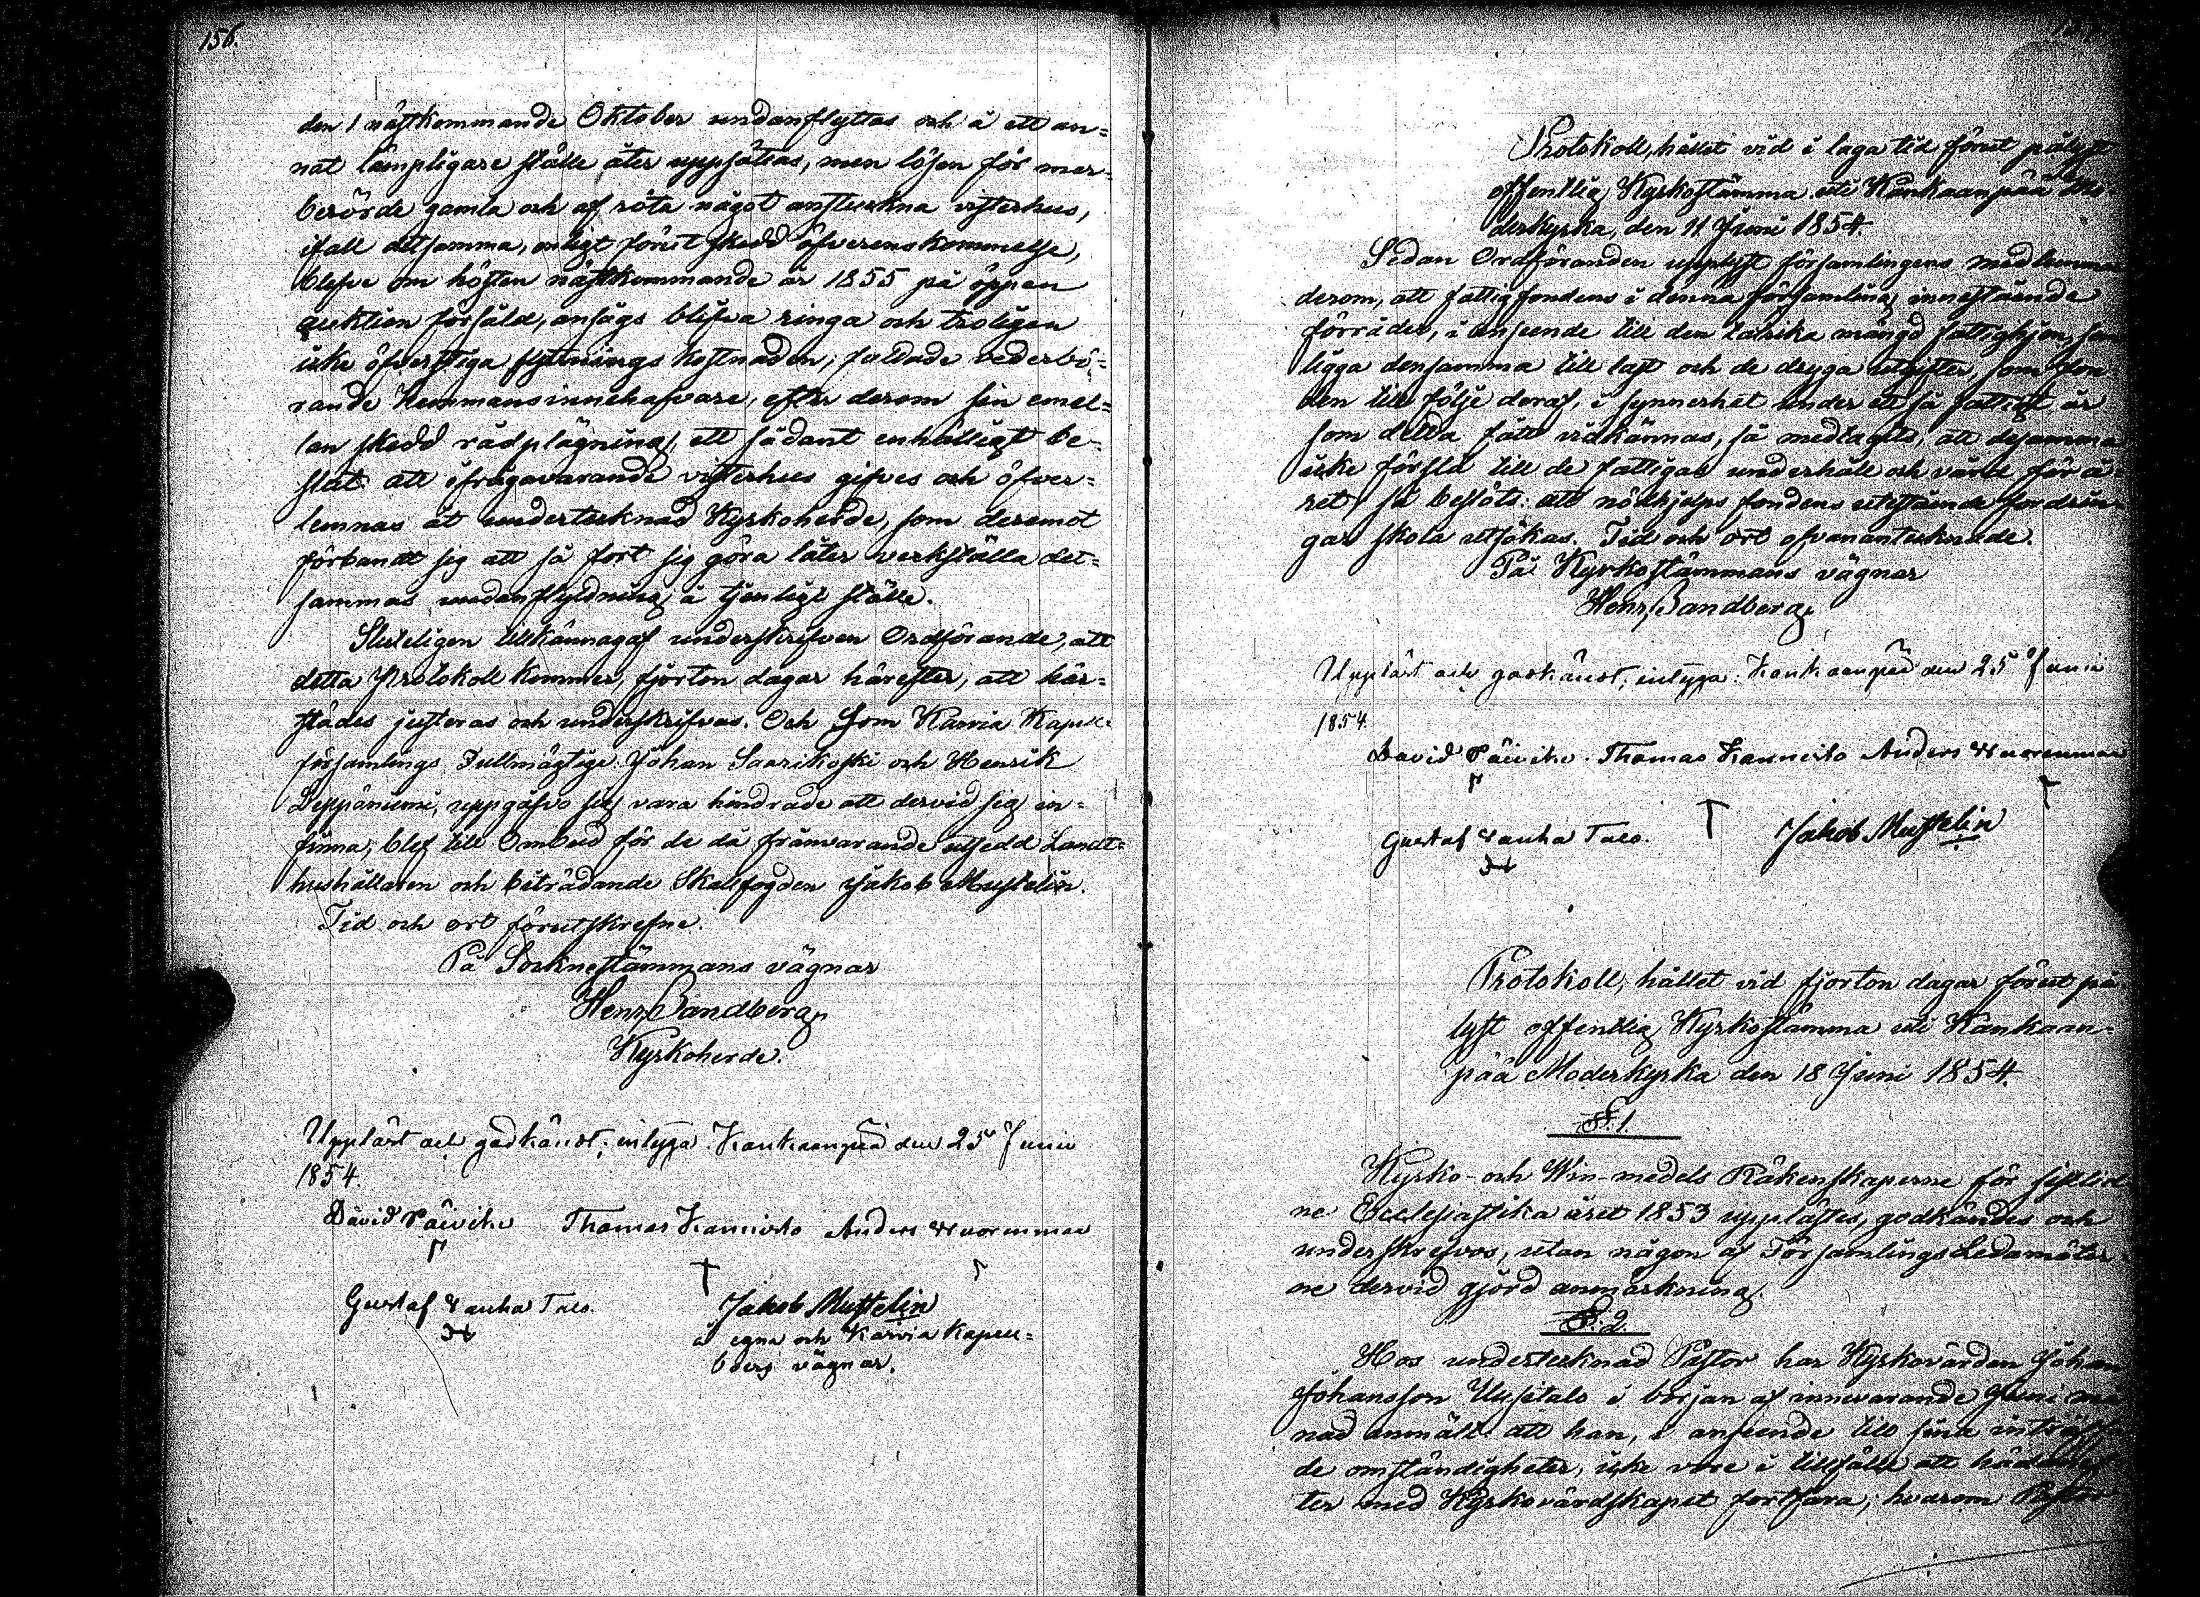 156.
den 1 nästkommande Oktober undanflyttas och å ett an=
nat lämpligare ställe åter uppsättas, men lösen för mer=
berörde gamla och af röta något anstuckna visterhus,
ifall detsamma, enligt förut skedd öfverenskommelse,
blefve om hösten nästkommande år 1855 på öppen
auktion försåld, ansågs blifva ringa och troligen
icke öfverstiga flyttnings kostnaden; fattade vederbö=
rande Hemmansinnehafvare, efter derom sin emel=
lan skedd rådplägning, ett sådant enhälligt be=
slut att ifrågavarande visterhus gifves och öfver=
lemnas åt undertecknad Kyrkoherde, som deremot
förbandt sig att så fort sig göra låter verkställa det=
sammas undanflyttning å tjenligt ställe.
Sluteligen tillkännagaf underskrifven Ordförande, att
detta Protokoll kommer, fjorton dagar härefter, att här=
städes justeras och underskrifvas. Och som Karvia Kapell=
församlings Fullmägtige Johan Saarikoski och Henrik
Leppäniemi, uppgåfvo sig vara hindrade att dervid sig in=
finna, blef till Ombud för de då frånvarande utsedd Landt=
hushållaren och biträdande Skallfogden Jakob Mustelin.
Tid och ort förutskrefne.
På Socknestämmans vägnar
Henr. Sandberg,
Kyrkoherde.
Uppläst och godkändt; intyga. Kankaanpää den 25 Junii
1854.
David Päivike Thomas Kannisto Anders Wuorenmaa
Gustaf Wanha Talo. Jakob Mustelin
å egna och Karvia Kapell=
boers vägnar.
Protokoll, hållet vid i laga tid förut pålyst
offentlig Kyrkostämma uti Kankaanpää Mo
derkyrka, den 11 Juni 1854.
Sedan Ordföranden upplyst församlingens medlemmar
derom, att fattigfondens i denna församling innestående
förråder, i anseende till den talrika mängd fattighjon, som
ligga densamma till last och de dryga utgifter, som fon
den till följe deraf, i synnerhet under ett så fattigt år
som detta fått vidkännas, så medtagits, att desamma
icke förslå till de fattigas underhåll och vård för å
ret, så beslöts: att nödhjelps fondens utestående fordrin
gar skola utsökas. Tid och ort ofvanantecknade.
På Kyrkostämmans vägnar
Henr. Sandberg.
Uppläst och godkändt; intyga. Kankaanpää den 25 Junii
1854.
David Päivike. Thomas Kannisto Anders Wuorenmaa
Gustaf Wanha Talo. Jakob Mustelin
Protokoll, hållet vid fjorton dagar förut på
lyst offentlig Kyrkostämma uti Kankaan=
pää Moderkyrka den 18 Juni 1854.
§. 1.
Kyrko- och Win-medels Räkenskaperne för sistlid
ne Ecclesiastika året 1853 upplästes, godkändes och
underskrefvos, utan någon af Församlings Ledamöter
ne dervid gjord anmärkning.
§. 2.
Hos undertecknad Pastor har Kyrkovärden Johan
Johansson Uusitalo i början af innevarande Juni må
nad anmält att han, i anseende till sina
de omständigheter, icke vore i tillfälle att hädanef
ter med Kyrkovärdskapet fortfara; hvarom Pastor